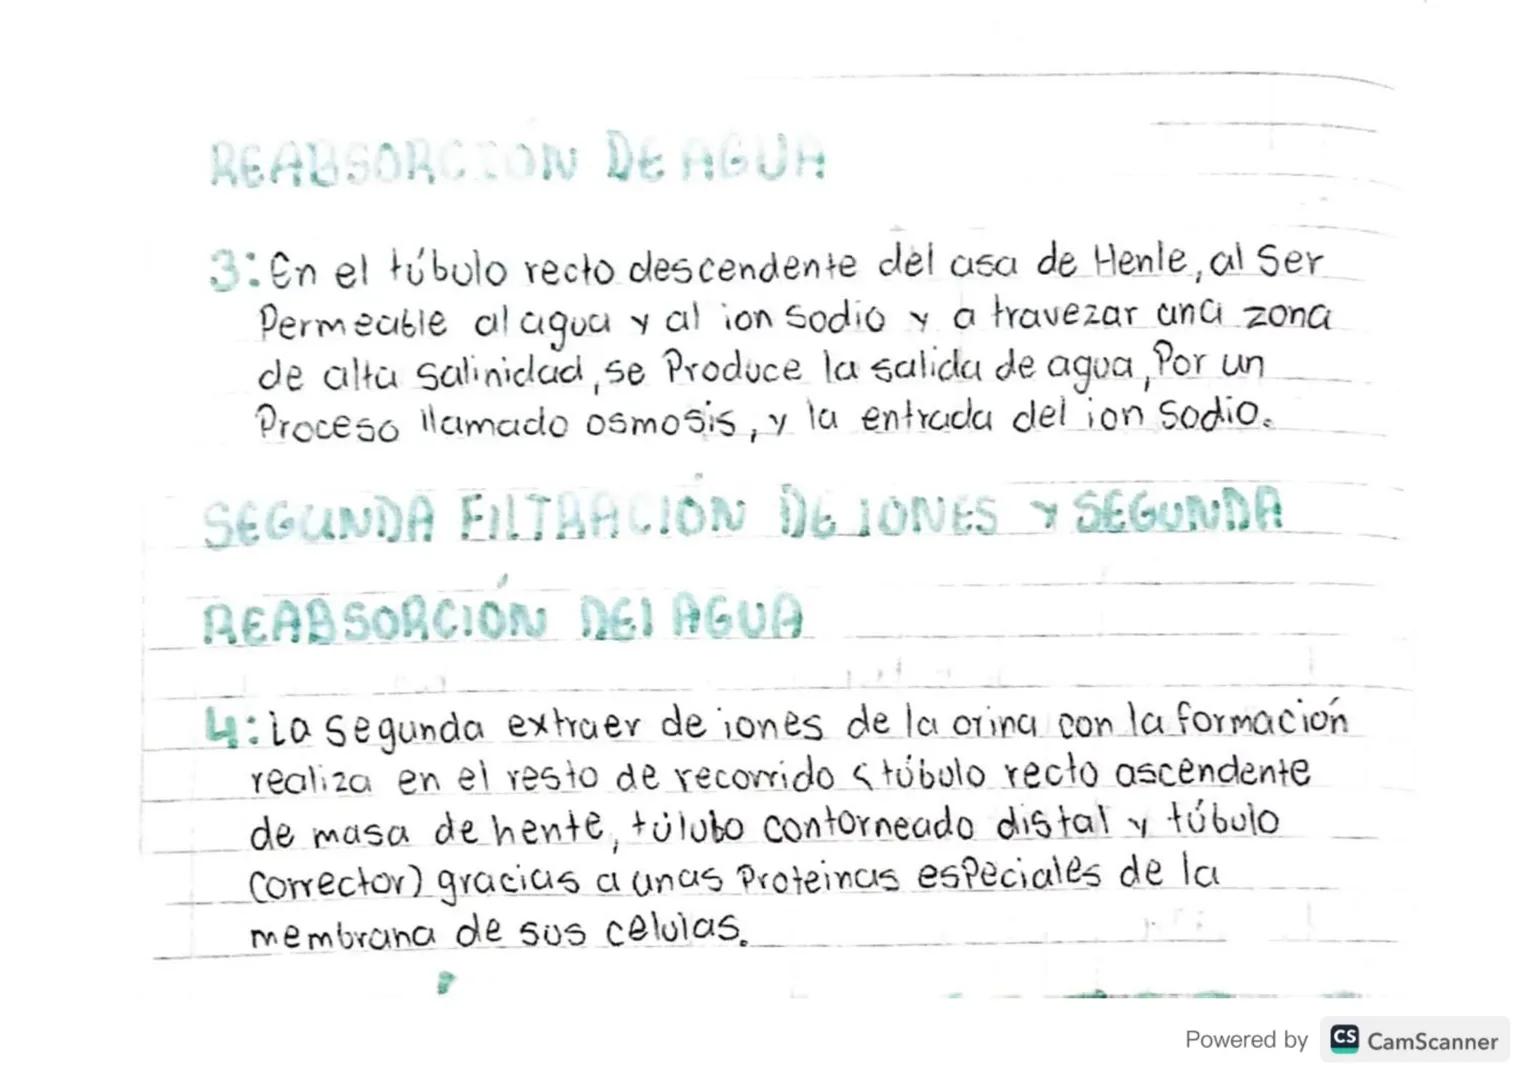 REABSORCIÓN DE AGUA
3: En el túbulo recto descendente del asa de Henle, al Ser
Permeable al agua y al ion Sodio y a travezar una zona
de alta salinidad, se Produce la salida de agua, Por un
Proceso llamado osmosis, y la entrada del ion Sodio.
SEGUNDA FILTRACIÓN DE IONES Y SEGUNDA
REABSORCIÓN DEL AGUA
4: La segunda extraer de iones de la orina con la formación
realiza en el resto de recorrido (túbulo recto ascendente
de masa de hente, túlubo contorneado distal y túbulo
corrector) gracias a unas Proteinas esPeciales de la
membrana de sus celulas.
Powered by CS CamScanner